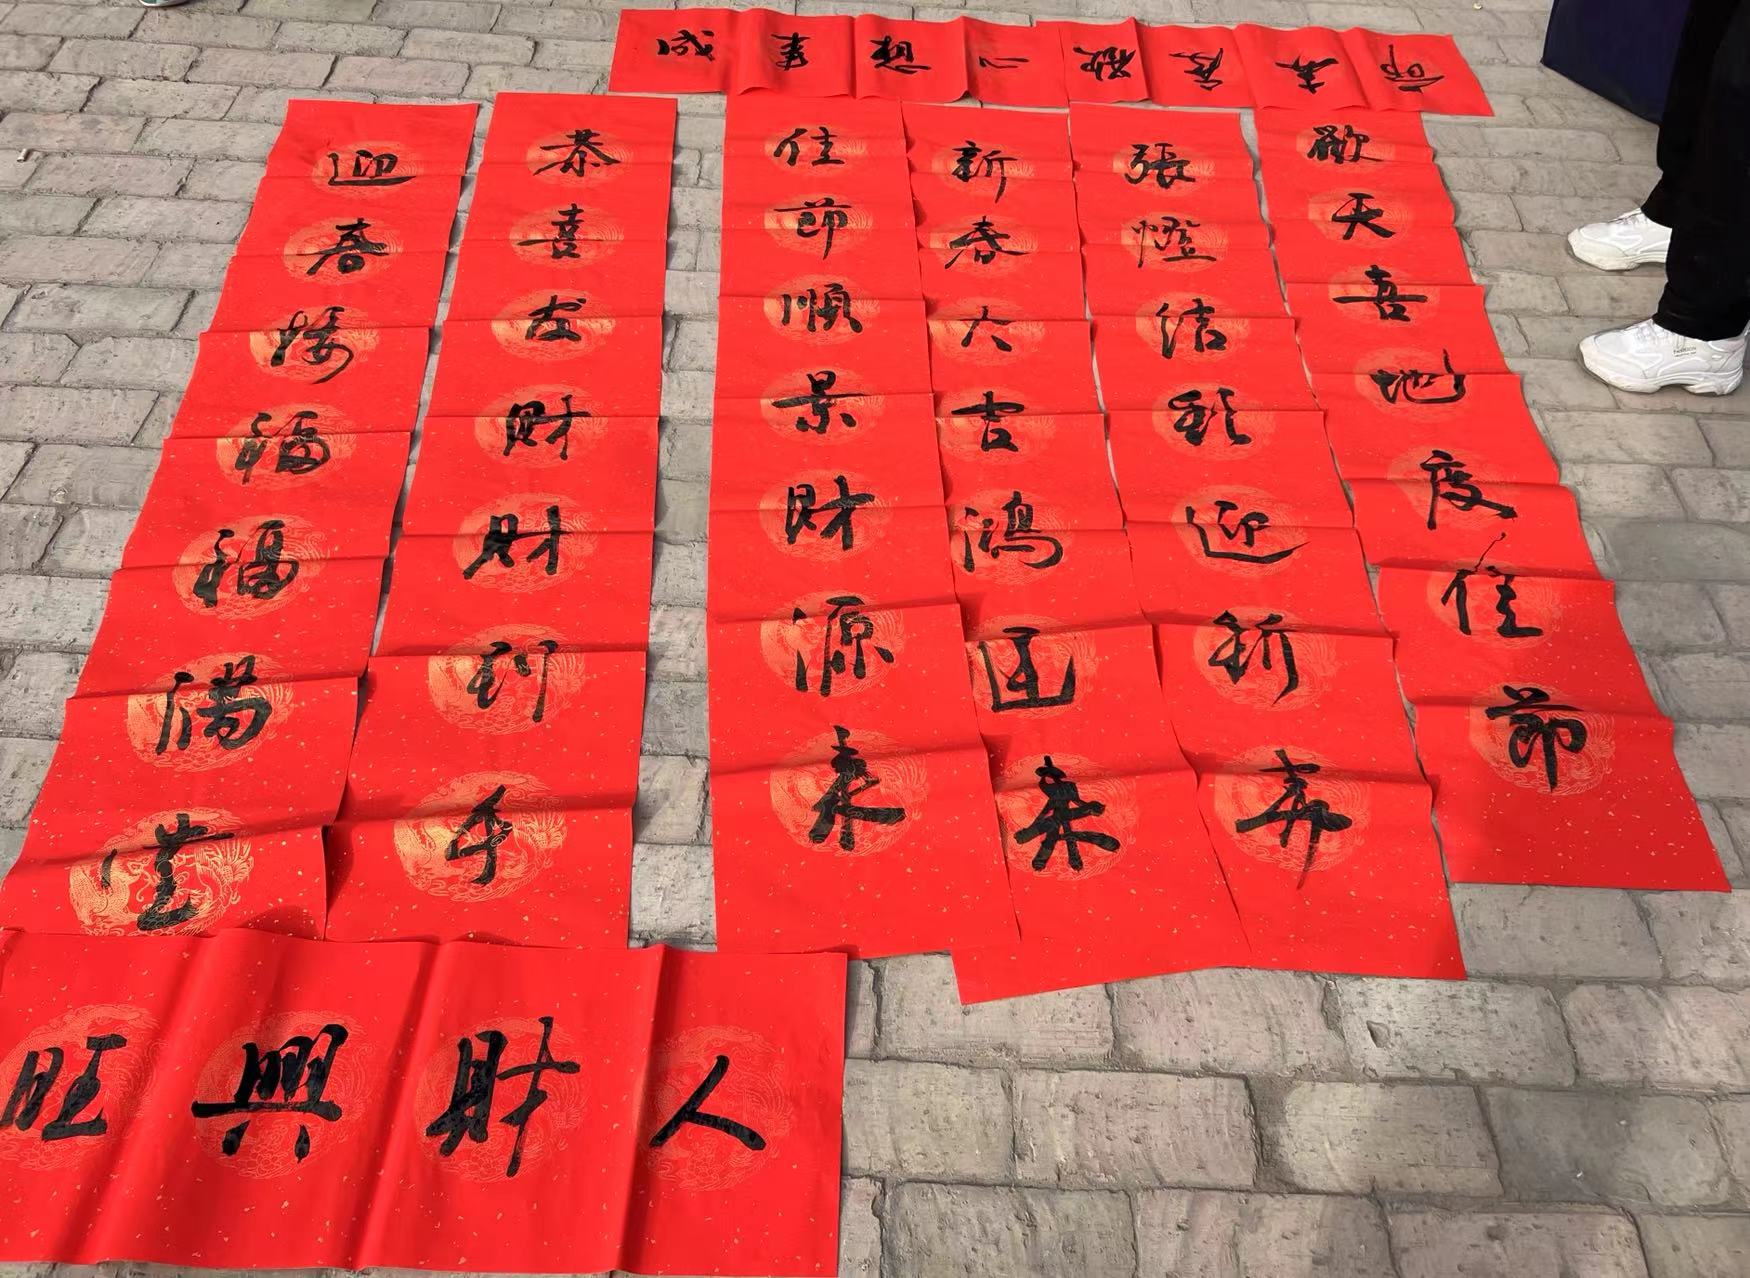 心想事成
歡度春節
歡天喜地度佳節
張燈結彩迎新春
新春大吉鴻運來
佳節順景財源來
恭喜发財財到手
迎春接福福滿堂
人財興旺